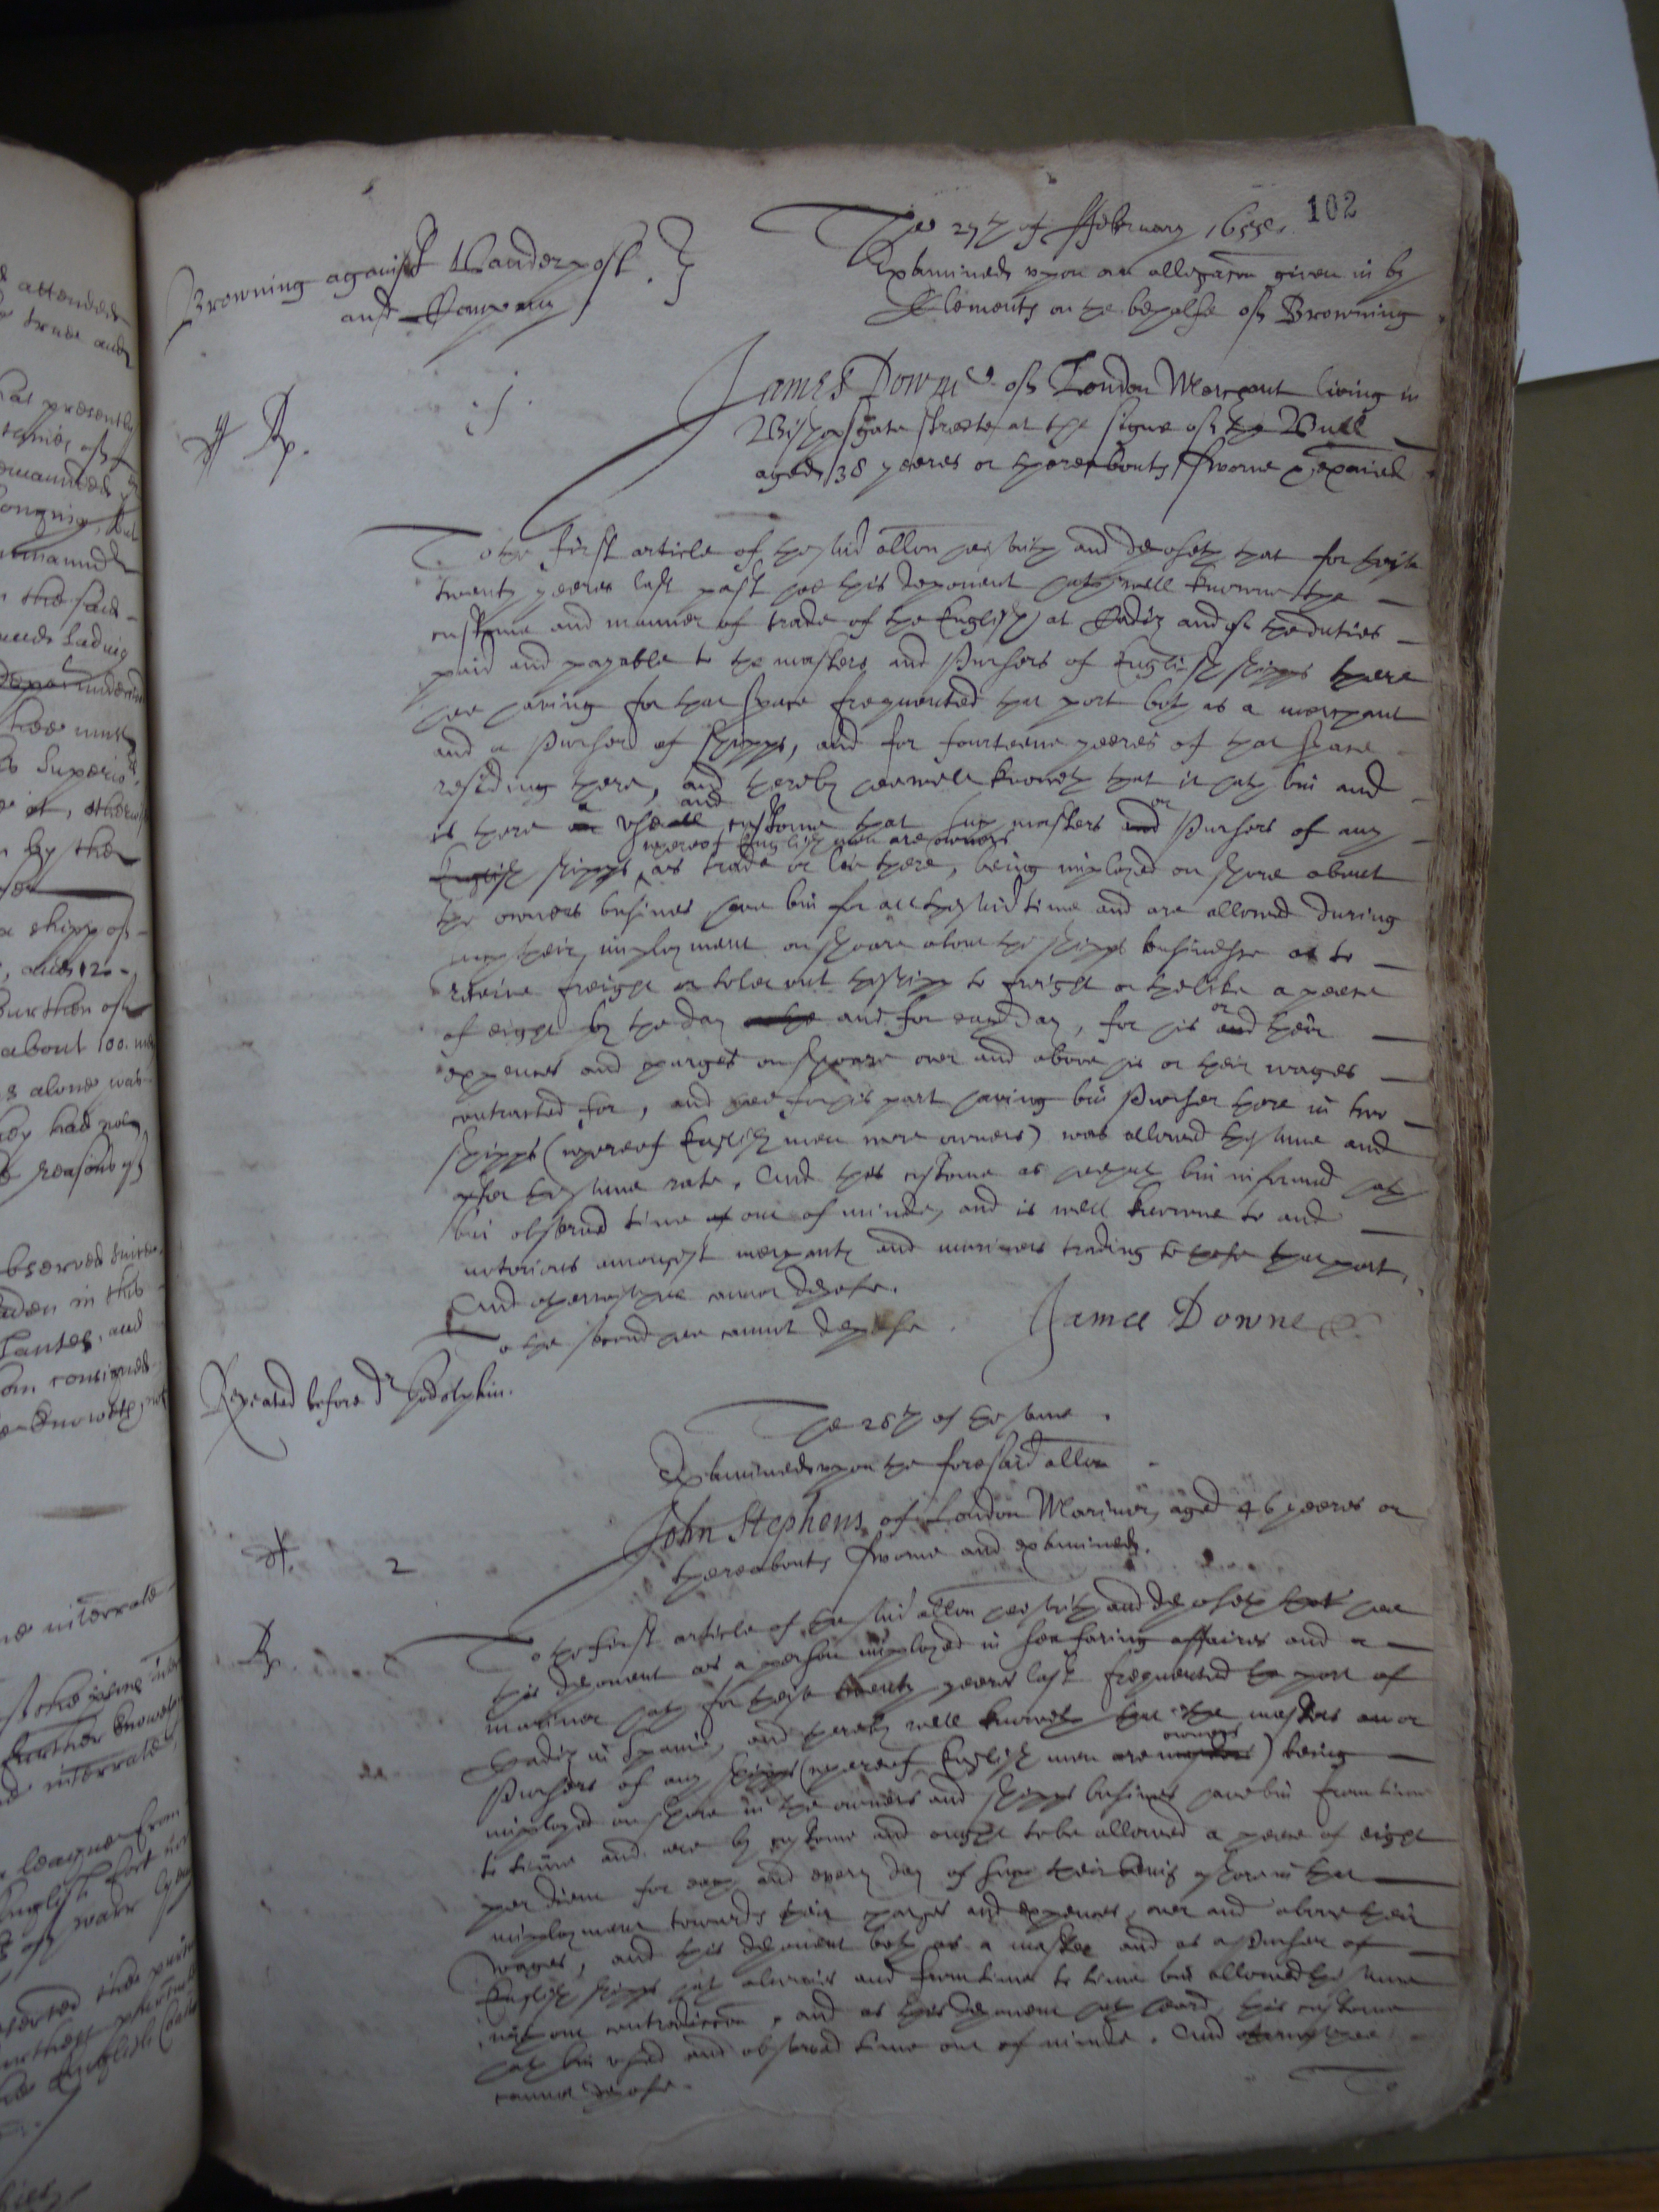 102
The 27th of ffebruary 1655.
Browning against Vanderpost
and Company
Examined upon an allegacon given in by
Clements on the behalfe of Browning
Rp. .1.
James Downe of London Merchant living in
Bishopsgate streete at the signe of the Bull
aged 38 yeeres or thereabouts sworne & exaied
To the first article of the said allon hee saith and deposeth that for theise
twenty yeeres last past hee this deponent hath well knowne the
custome and manner of trade of the English at Cadiz and of the duties
paid and payable to the masters and Pursers of English shipps there
hee having for that space frequented that port both as a merchant
and a Purser of shipps, and for fourteene yeeres of that space
residing there, and thereby hee well knoweth that it hath bin and
is there a use and custome that such masters or Pursers of any
English shipps whereof English men are owners as trade or lie there, being imployed on shore about
the owners busines have bin for all the said time and are allowed during
such their imployment on shoare about the shipps businesse as to
receive freight or to let out the shipp to freight or the like a peece
of eight by the day and for each day, for his or their
expences and charges on shoare over and above his or their wages
contracted for, and hee for his part having bin Purser there in two
shipps (whereof English men were owners) was allowed the same and
after the same rate. And this custome as hee hath bin informed hath
bin observed time out of minde, and is well knowne to and
notorious amongst merchants and mariners trading to that port,
And otherwise hee cannot depose.
To the second hee cannot depose.
James Downe
Repeated before dr Godolphin.
The 28th of the same.
Examined upon the foresaid allon
John Stephens of London Mariner, aged 46 yeeres or
thereabouts sworne and examined.
2
Rp.
To the first article of the said allon hee saith and deposeth that hee
this deponent as a person imployed in sea faring affaires and a
mariner hath for theise twenty yeeres last frequented the port of
Cadiz in Spaine, and thereby well knoweth that the masters and or
Pursers of any shipps (whereof English men are owners) being
imployed on shore in the owners and shipps busines have bin from time
to time and are by custome and ought to be allowed a peece of eight
per diem for each and every day of such their being ashore in that
imployment towards their charges and expences, over and above their
wages, and this deponent both as a master and as a Purser of
English shipps hath alwaies and from time to time bin allowed the same
without contradiccon, and as this deponent hath heard, this custome
hath bin used and observed time out of minde. And otherwise hee
cannot depose.
To